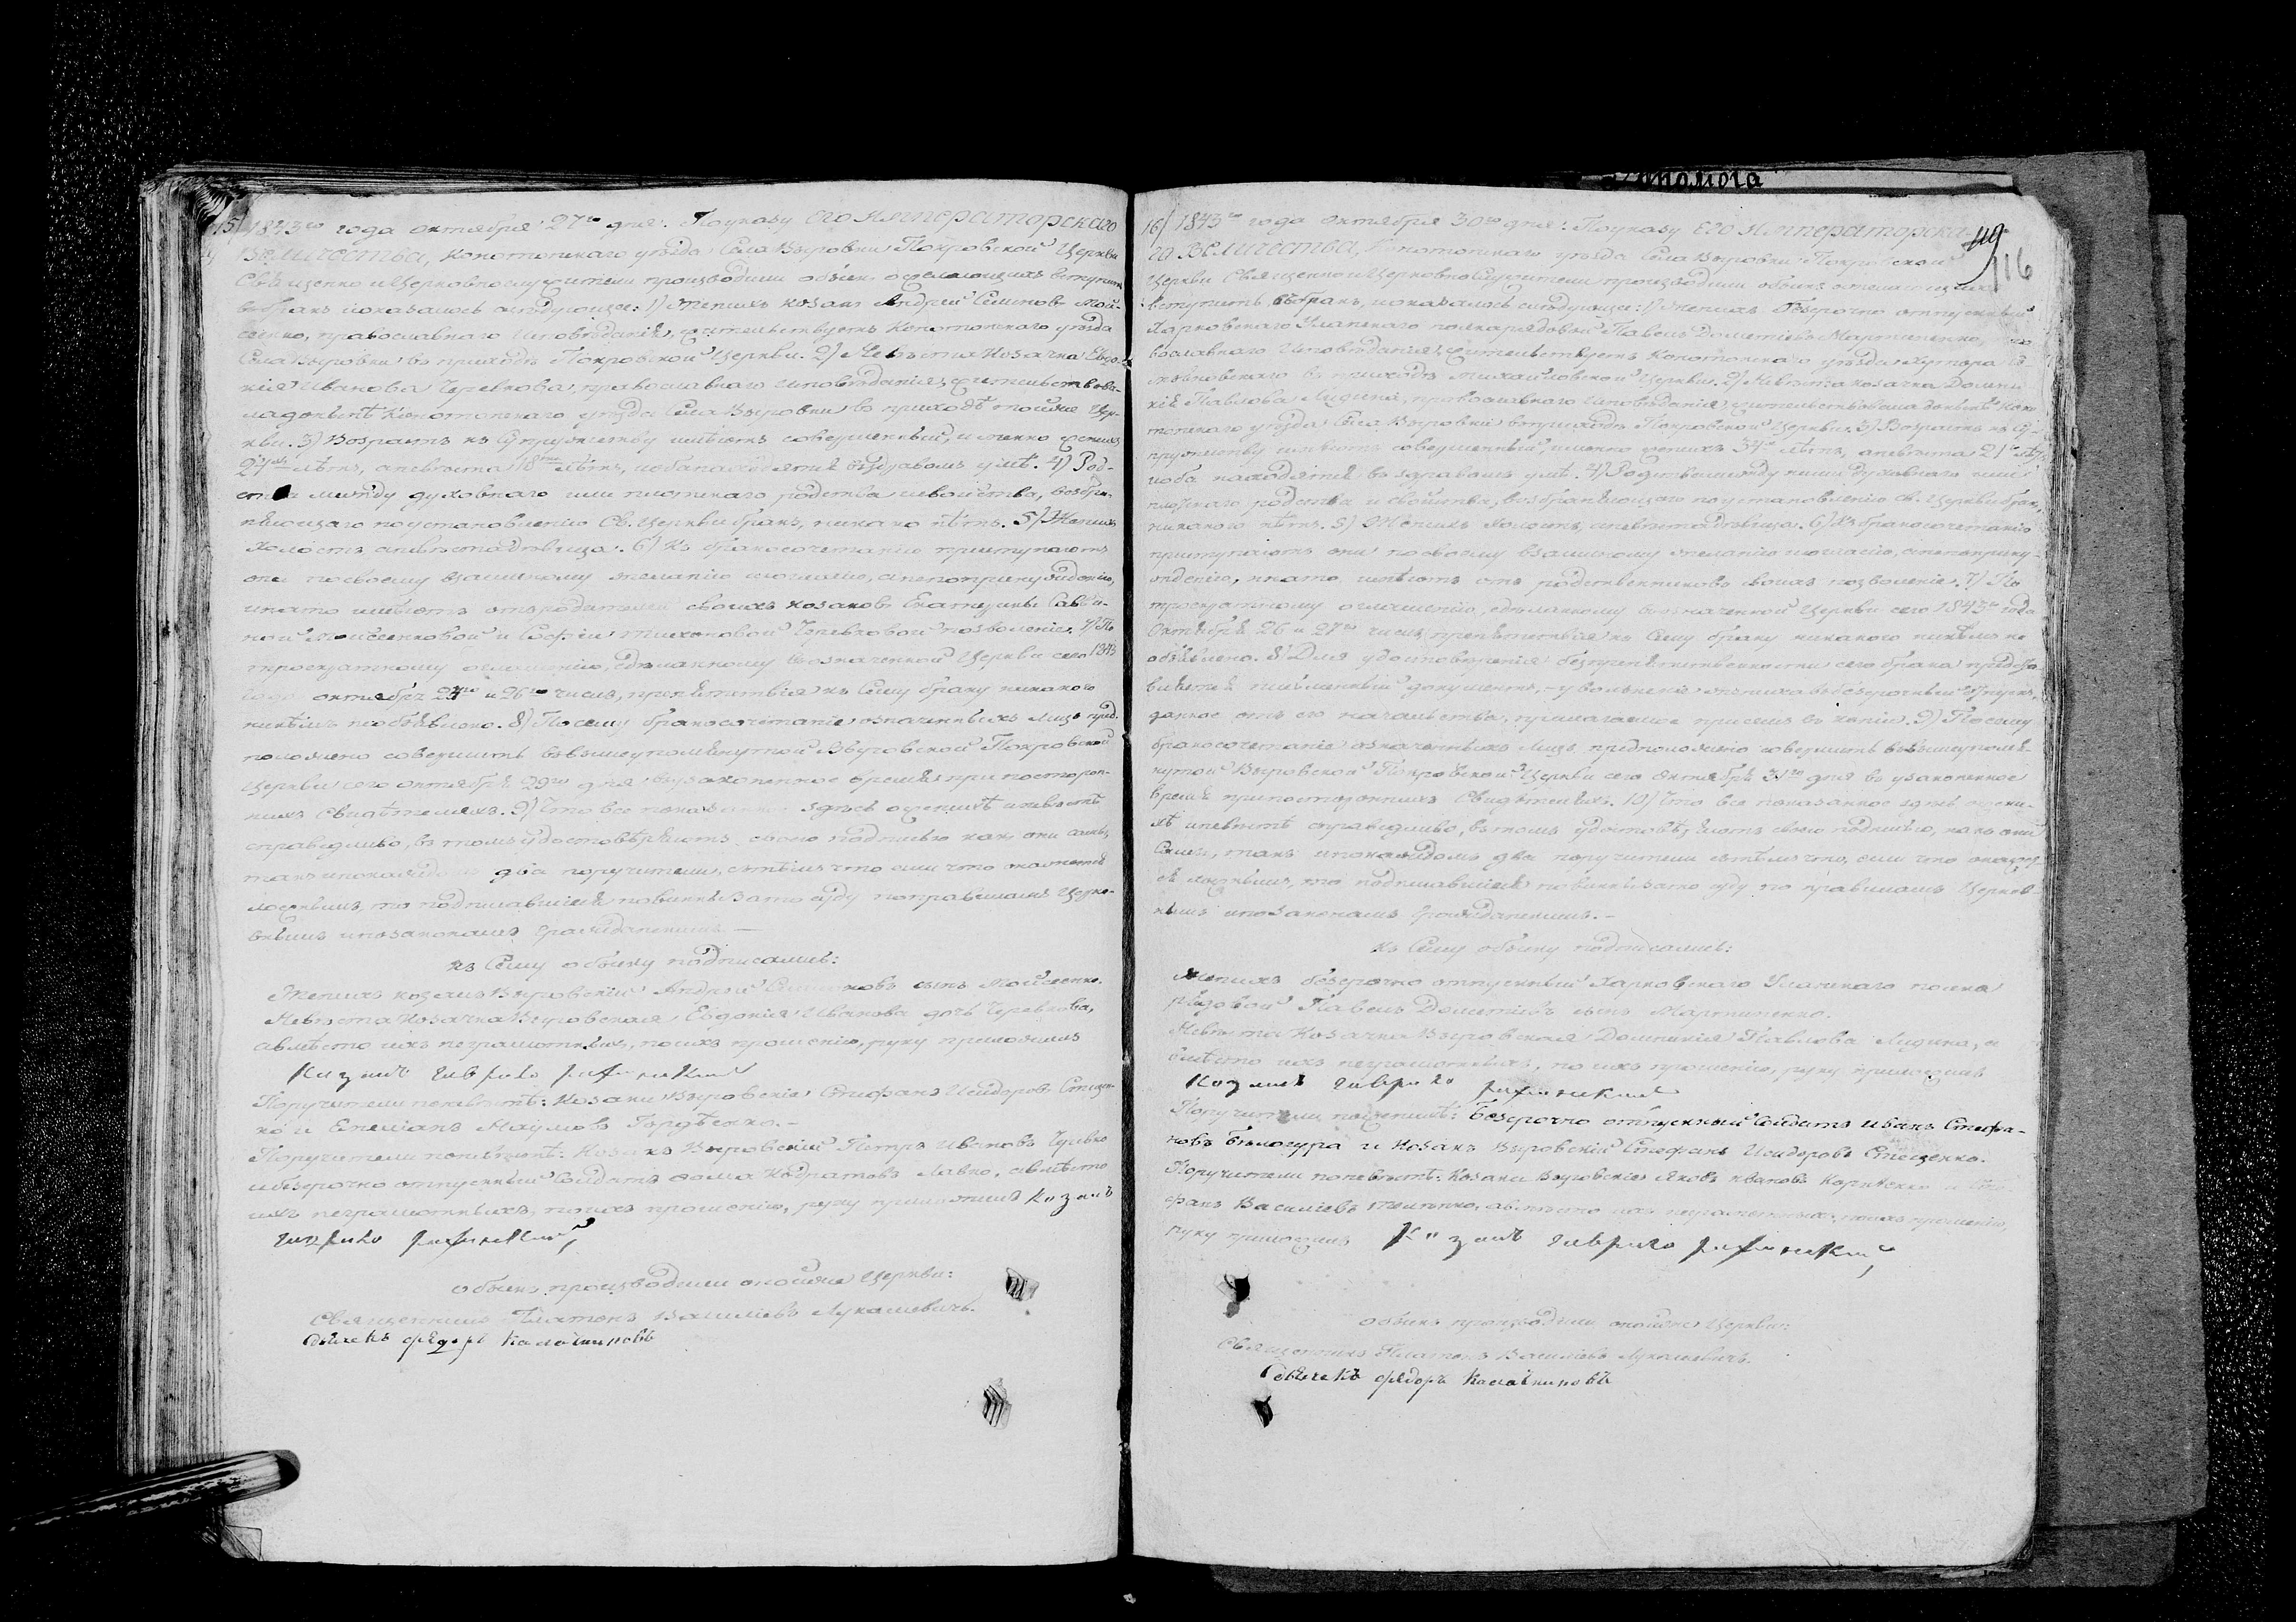 15) 1843го года октября 27го дня: По указу Его Императорскаго
Величества, Конотопскаго уѣзда Села Выровки Покровской Церкви
Священно и Церковнослужители производили обыск о желающих вступить
в брак и оказалось следующее: 1) Жених козак Андрей Семенов Мой-
сеенко, православнаго исповѣдания, жительствует Конотопскаго уѣзда
Села Выровки в приходѣ Покровской Церкви. 2) Невѣста козачка Евдо-
кия Иванова Черевкова, православнаго исповѣдания, жительствова-
ла донынѣ Конотопскаго уѣзда Села Выровки в приходѣ тойже Цер-
кви. 3) Возраст к супружеству имѣют совершенный, именно жених
лѣт, а невѣста 18 лѣт, и оба находятся в здравом умѣ. 4) Род-
ства между духовнаго или плотскаго родства и свойства, возбра-
няющаго по установлению Св. Церкви брак, никако нѣт. 5) Жених
холост а невѣста дѣвица. 6) К бракосочетанию приступают
они по своему взаимному желанию и согласию, а не по принуждению,
и на то имѣют от родителей своих козаков Екатерины Савви-
ной Мойсеенковой и Софии Тихоновой Черевковой позволение. 7) По
троекратному оглашению, сдѣланному в означенной Церкви сего 1843
года октября 24го и 26го числ, препятствия к сему браку никакого
никѣм не объявлено. 8) По сему бракосочетание означенных лиц пред-
положено совершить в вышеупомянутой Выровской Покровской
Церкви сего октября 29го дня в узаконенное время при посторон-
них свидѣтелях. 9) Что все показанное здѣсь о женихѣ и невѣстѣ
справедливо, в том удостовѣряют своею подписью как они сами,
так и по каждом два поручители, с тѣм что если что окажется
ложным, то подписавшиеся повинны за то суду по правилам Церко-
вным и по законам гражданским. —
к Сему обыску подписались:
Жених козак Выровский Андрей Семенов сын Мойсеенко.
Невѣста козачка Выровская Евдокия Иванова дочь Черевкова,
а вмѣсто их неграмотных, по их прошению, руку приложил
Козак Гаврило
Поручители по невѣстѣ: Козаки Выровские Стефан Исидоров Стецен-
ко и Емелиан Наумов
Поручители по невѣстѣ: Козак Выровский Петр Иванов Черевко
и безсрочно отпускный Солдат Фома Кодратов Лавко, а вмѣсто
их неграмотных, по их прошению, руку приложил Козак
Гаврило
Обыск производили оной же Церкви:
Священник Платон Василиев Лукашевич.
Дьячек Федор
16) 1843го года октября 30го дня: По указу Его Императорска-
го Величества, Конотопскаго уѣзда Села Выровки Покровской
119
116
Церкви Священно и Церковнослужители производили обыск о желающих
вступить в брак, и оказалось слѣдующее: 1) Жених безсрочно отпускный
Харковскаго Уланскаго полка рядовой Павел Дометиев Мартиненко,
вославнаго исповѣдания, жительствует Конотопскаго уѣзда Хутора
в приходѣ Михайловской Церкви. 2) Невѣста козачка Домни-
кия Павлова Лидина, православнаго исповѣдания, жительствовала донынѣ Коно-
топскаго уѣзда Села Выровки в приходѣ Покровской Церкви. 3) Возраст к су-
пружеству имѣют совершенный, именно жених лѣт, а невѣста 21 лѣт,
и оба находятся в здравом умѣ. 4) Родства между ними духовнаго или
плотскаго родства и свойства, возбраняющаго по установлению св. Церкви брак,
никакого нѣт. 5) Жених холост, а невѣста дѣвица. 6) К бракосочетанию
приступают они по своему взаимному желанию и согласию, а не по прину-
ждению, и на то имѣют от родственников своих позволение. 7) По
троекратному оглашению, сдѣланному в означенной Церкви сего 1843го года
Октября 26 и 27го числ, препятствия к сему браку никакого никѣм не
объявлено. 8) Для удостовѣрения безпрепятственности сего брака предста-
вляется письменный документ, — увольнение жениха в безсрочный отпуск,
данное от его начальства, прилагаемое при сем в копии. 9) По сему
бракосочетание означенных лиц предположено совершить в вышеупомя-
нутой Выровской Покровской Церкви сего Октября 31го дня в узаконенное
время при посторонних Свидѣтелях. 10) Что все показанное здѣсь о жени-
хѣ и невѣстѣ справедливо, в том удостовѣряют своею подписью, как они
сами, так и по каждом два поручители с тѣм что, если что окажет-
ся ложным, то подписавшиеся повинны за то суду по правилам Церков-
ным и по законам Гражданским. —
к Сему обыску подписались:
Жених безсрочно отпускный Харковскаго Уланскаго полка
рядовой Павел Дометиев сын Мартиненко.
Невѣста Козачка Выровская Домникия Павлова Лидина, а
вмѣсто их неграмотных, по их прошению, руку приложил
Козак Гаврило
Поручители по женихѣ: Безсрочно отпускный Солдат Иван Стефа-
нов Бѣлогура и Козак Выровский Стефан Исидоров Стеценко.
Поручители по невѣстѣ: Козаки Выровские Яков Иванов и Сте-
фан Василиев а вмѣсто их неграмотных, по их прошению,
руку приложил Козак Гаврило
Обыск производили оной же Церкви:
Священник Платон Василиев Лукашевич.
Дьячек Федор